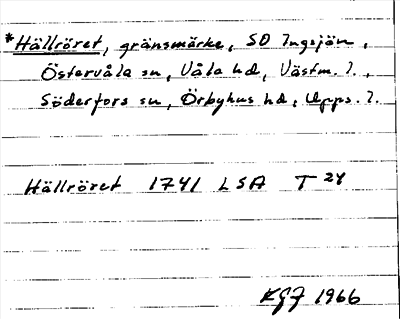 *Hällröret, gränsmärke, SO Ingsjön,
Östervåla sn, Våla hd, Västm. l.,
Söderfors sn, Örbyhus hd, Upps. l.
Hällröret 1741 LSA T 24
KGJ 1966